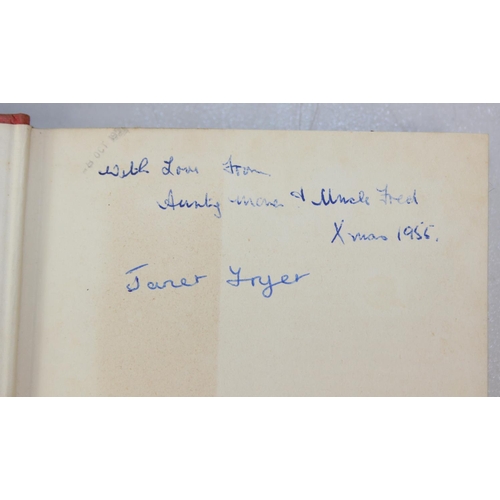 With Love From
Aunty & Uncle Fred
X'mas 1955.
Janet Fryer